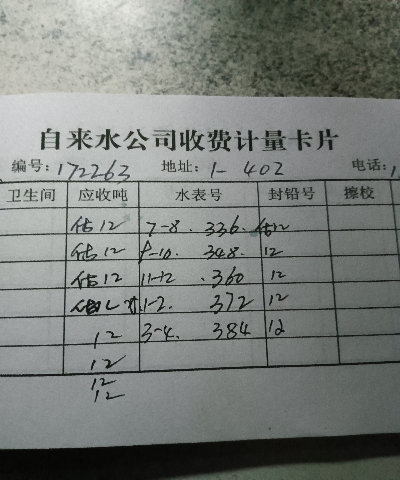 自来水公司收费计量卡片
编号: 172263 地址: 1- 402 电话:
卫生间 应收吨 水表号 封铅号 擦校
估12 7-8. 336. 估12
估12 9-10. 348. 12
估12 11-12 .360 12
1-2. 372 12
12 3-4. 384 12
12
12
12